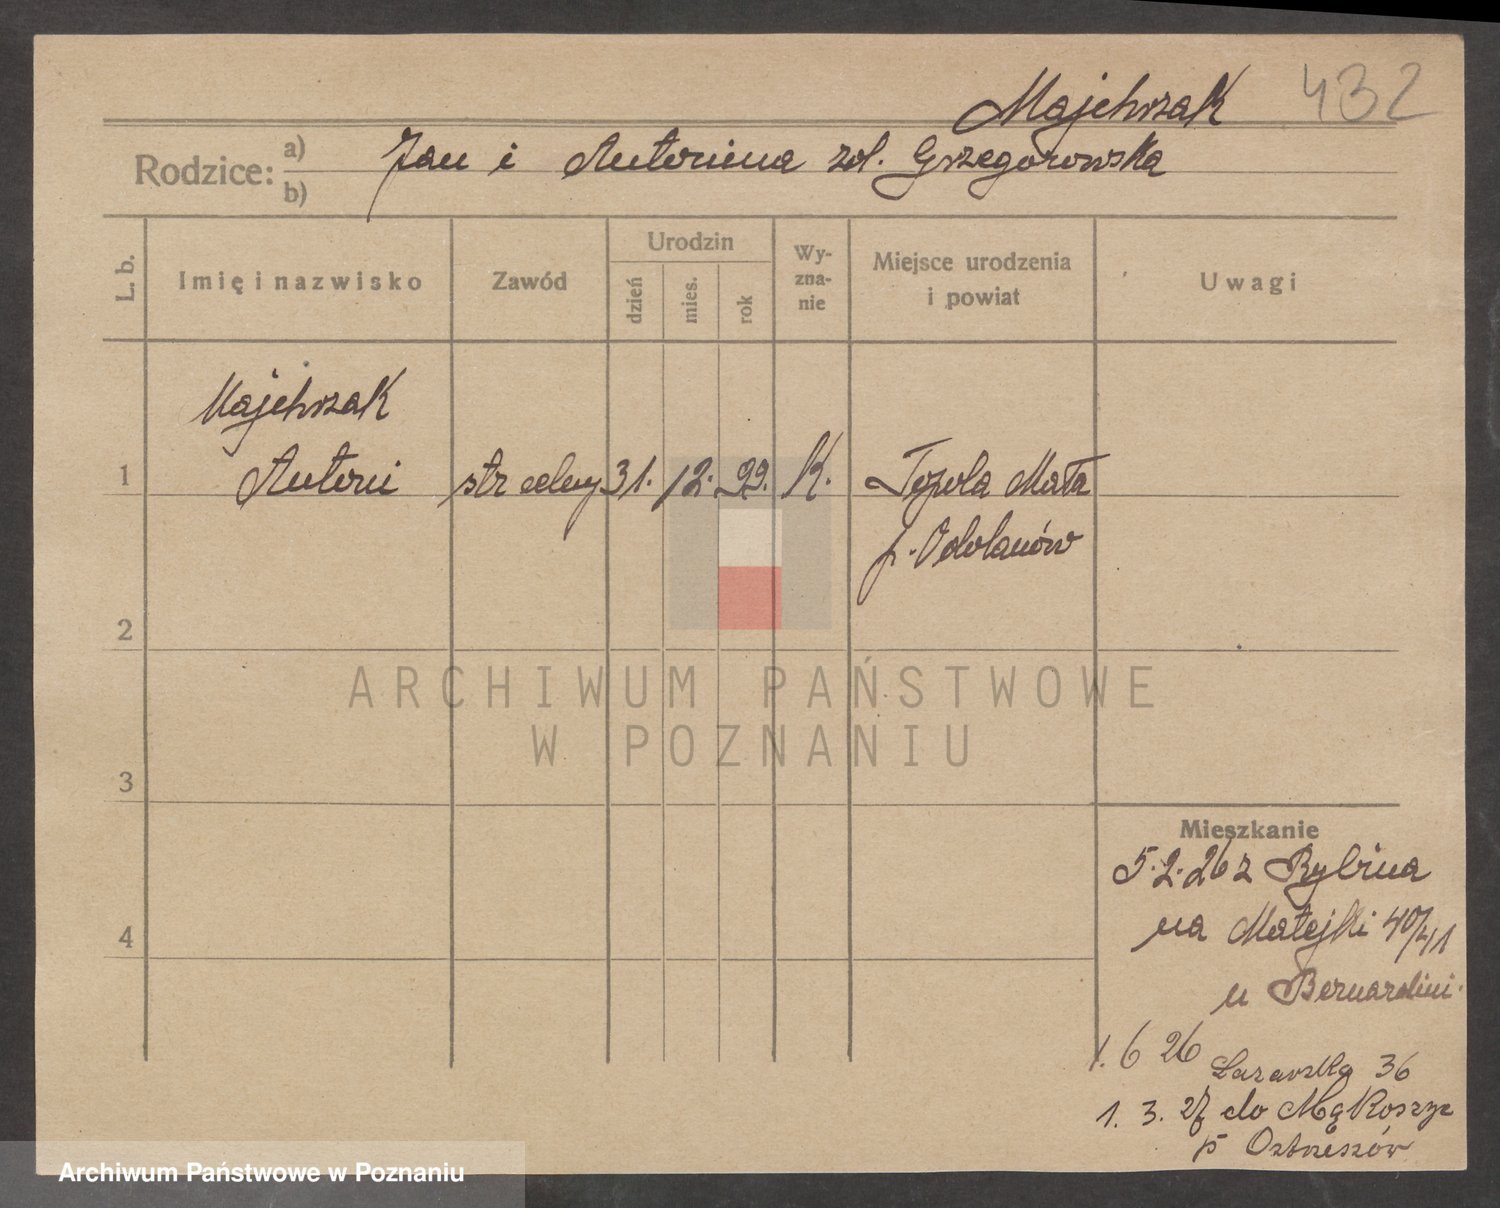 Majchrzak 432
Rodzice: a) b) Jan i Antonina zd. Grzegorowska
L. b. Imię i nazwisko Zawód Urodzin dzień mies. rok Wyznanie Miejsce urodzenia i powiat Uwagi
Majchrzak
1 Antoni 31. 12. 99. K. Topola Mała
p. Odolanów
2
ARCHIWUM PAŃSTWOWE
W POZNANIU
3
Mieszkanie
5.2.26 z Rybina
4 na Matejki 40/41
u Bernardini
1. 6 26 Lazarska 36
1. 3. 27 do Mąkoszyc
p Ostrzeszów
Archiwum Państwowe w Poznaniu